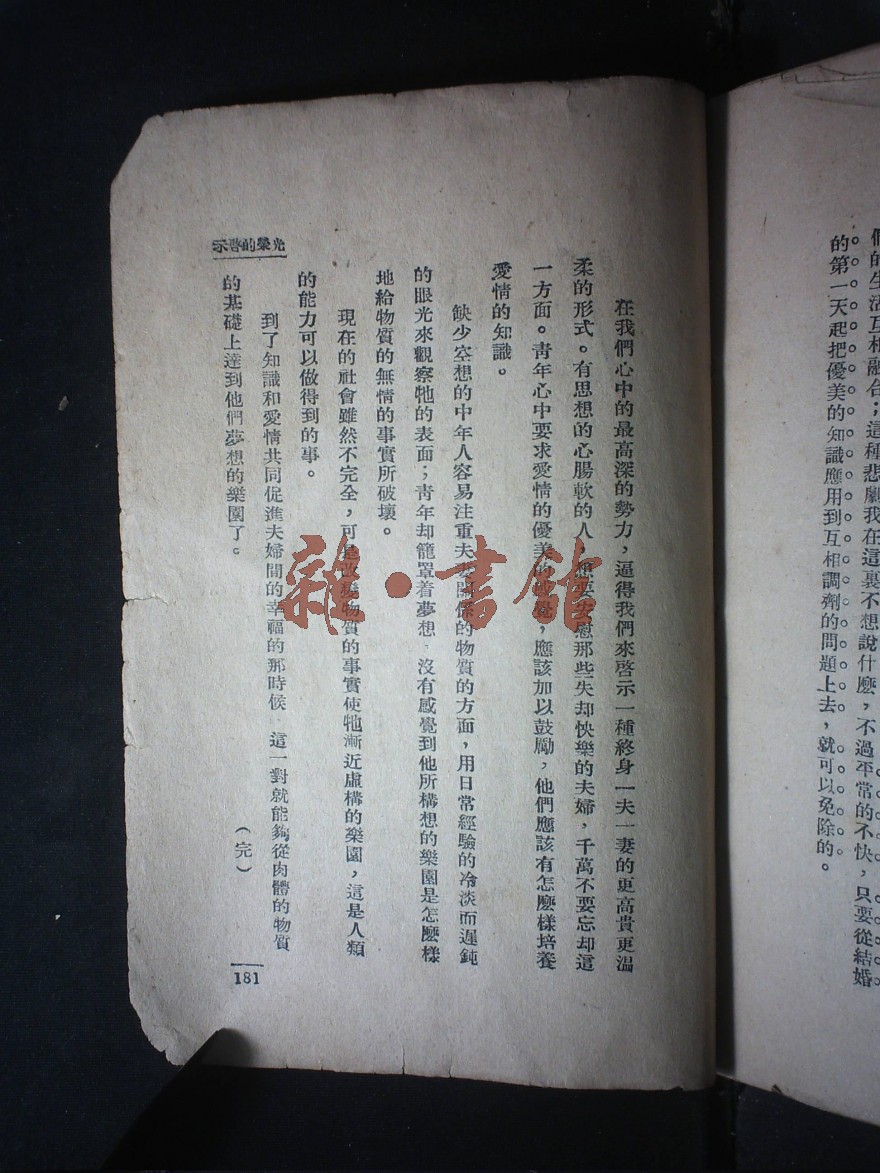 們的生活互相融合；這種悲劇我在這裏不想說什麼，不過平常的不快，只要從結婚
的第一天起把優美的知識應用到互相調劑的問題上去，就可以免除的。
在我們心中的最高深的勢力，逼得我們來啓示一種終身一夫一妻的更高貴更溫
柔的形式。有思想的心腸軟的人，想要安慰那些失却快樂的夫婦，千萬不要忘却這
一方面。青年心中要求愛情的優美的，應該加以鼓勵，他們應該有怎麼樣培養
愛情的知識。
缺少空想的中年人容易注重夫妻關係的物質的方面，用日常經驗的冷淡而遲鈍
的眼光來觀察牠的表面；青年却籠罩着夢想，沒有感覺到他所構想的樂園是怎麼樣
地給物質的無情的事實所破壞。
現在的社會雖然不完全，可是改變物質的事實使牠漸近虛構的樂園，這是人類
的能力可以做得到的事。
到了知識和愛情共同促進夫婦間的幸福的那時候，這一對就能夠從肉體的物質
的基礎上達到他們夢想的樂園了。
（完）
示啓的榮光
181
雜·書館